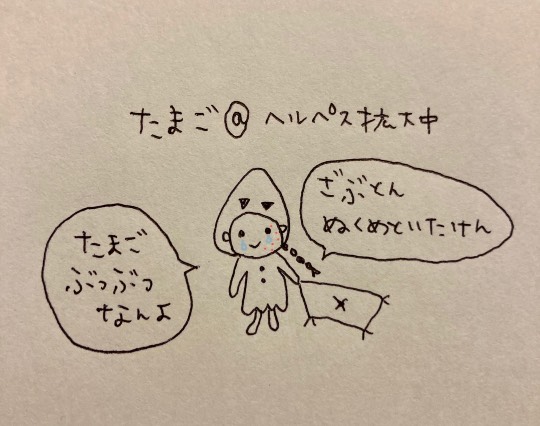 たまご@ヘルペス拡大中
ざぶとん
ぬくめといたけん
たまご
ぶつぶつ
なんよ